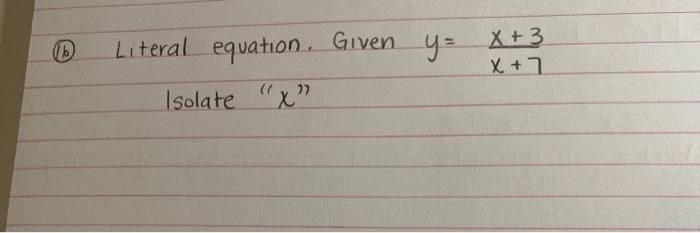 (16) Literal equation. Given y = x + 3 / x + 7
Isolate "x"